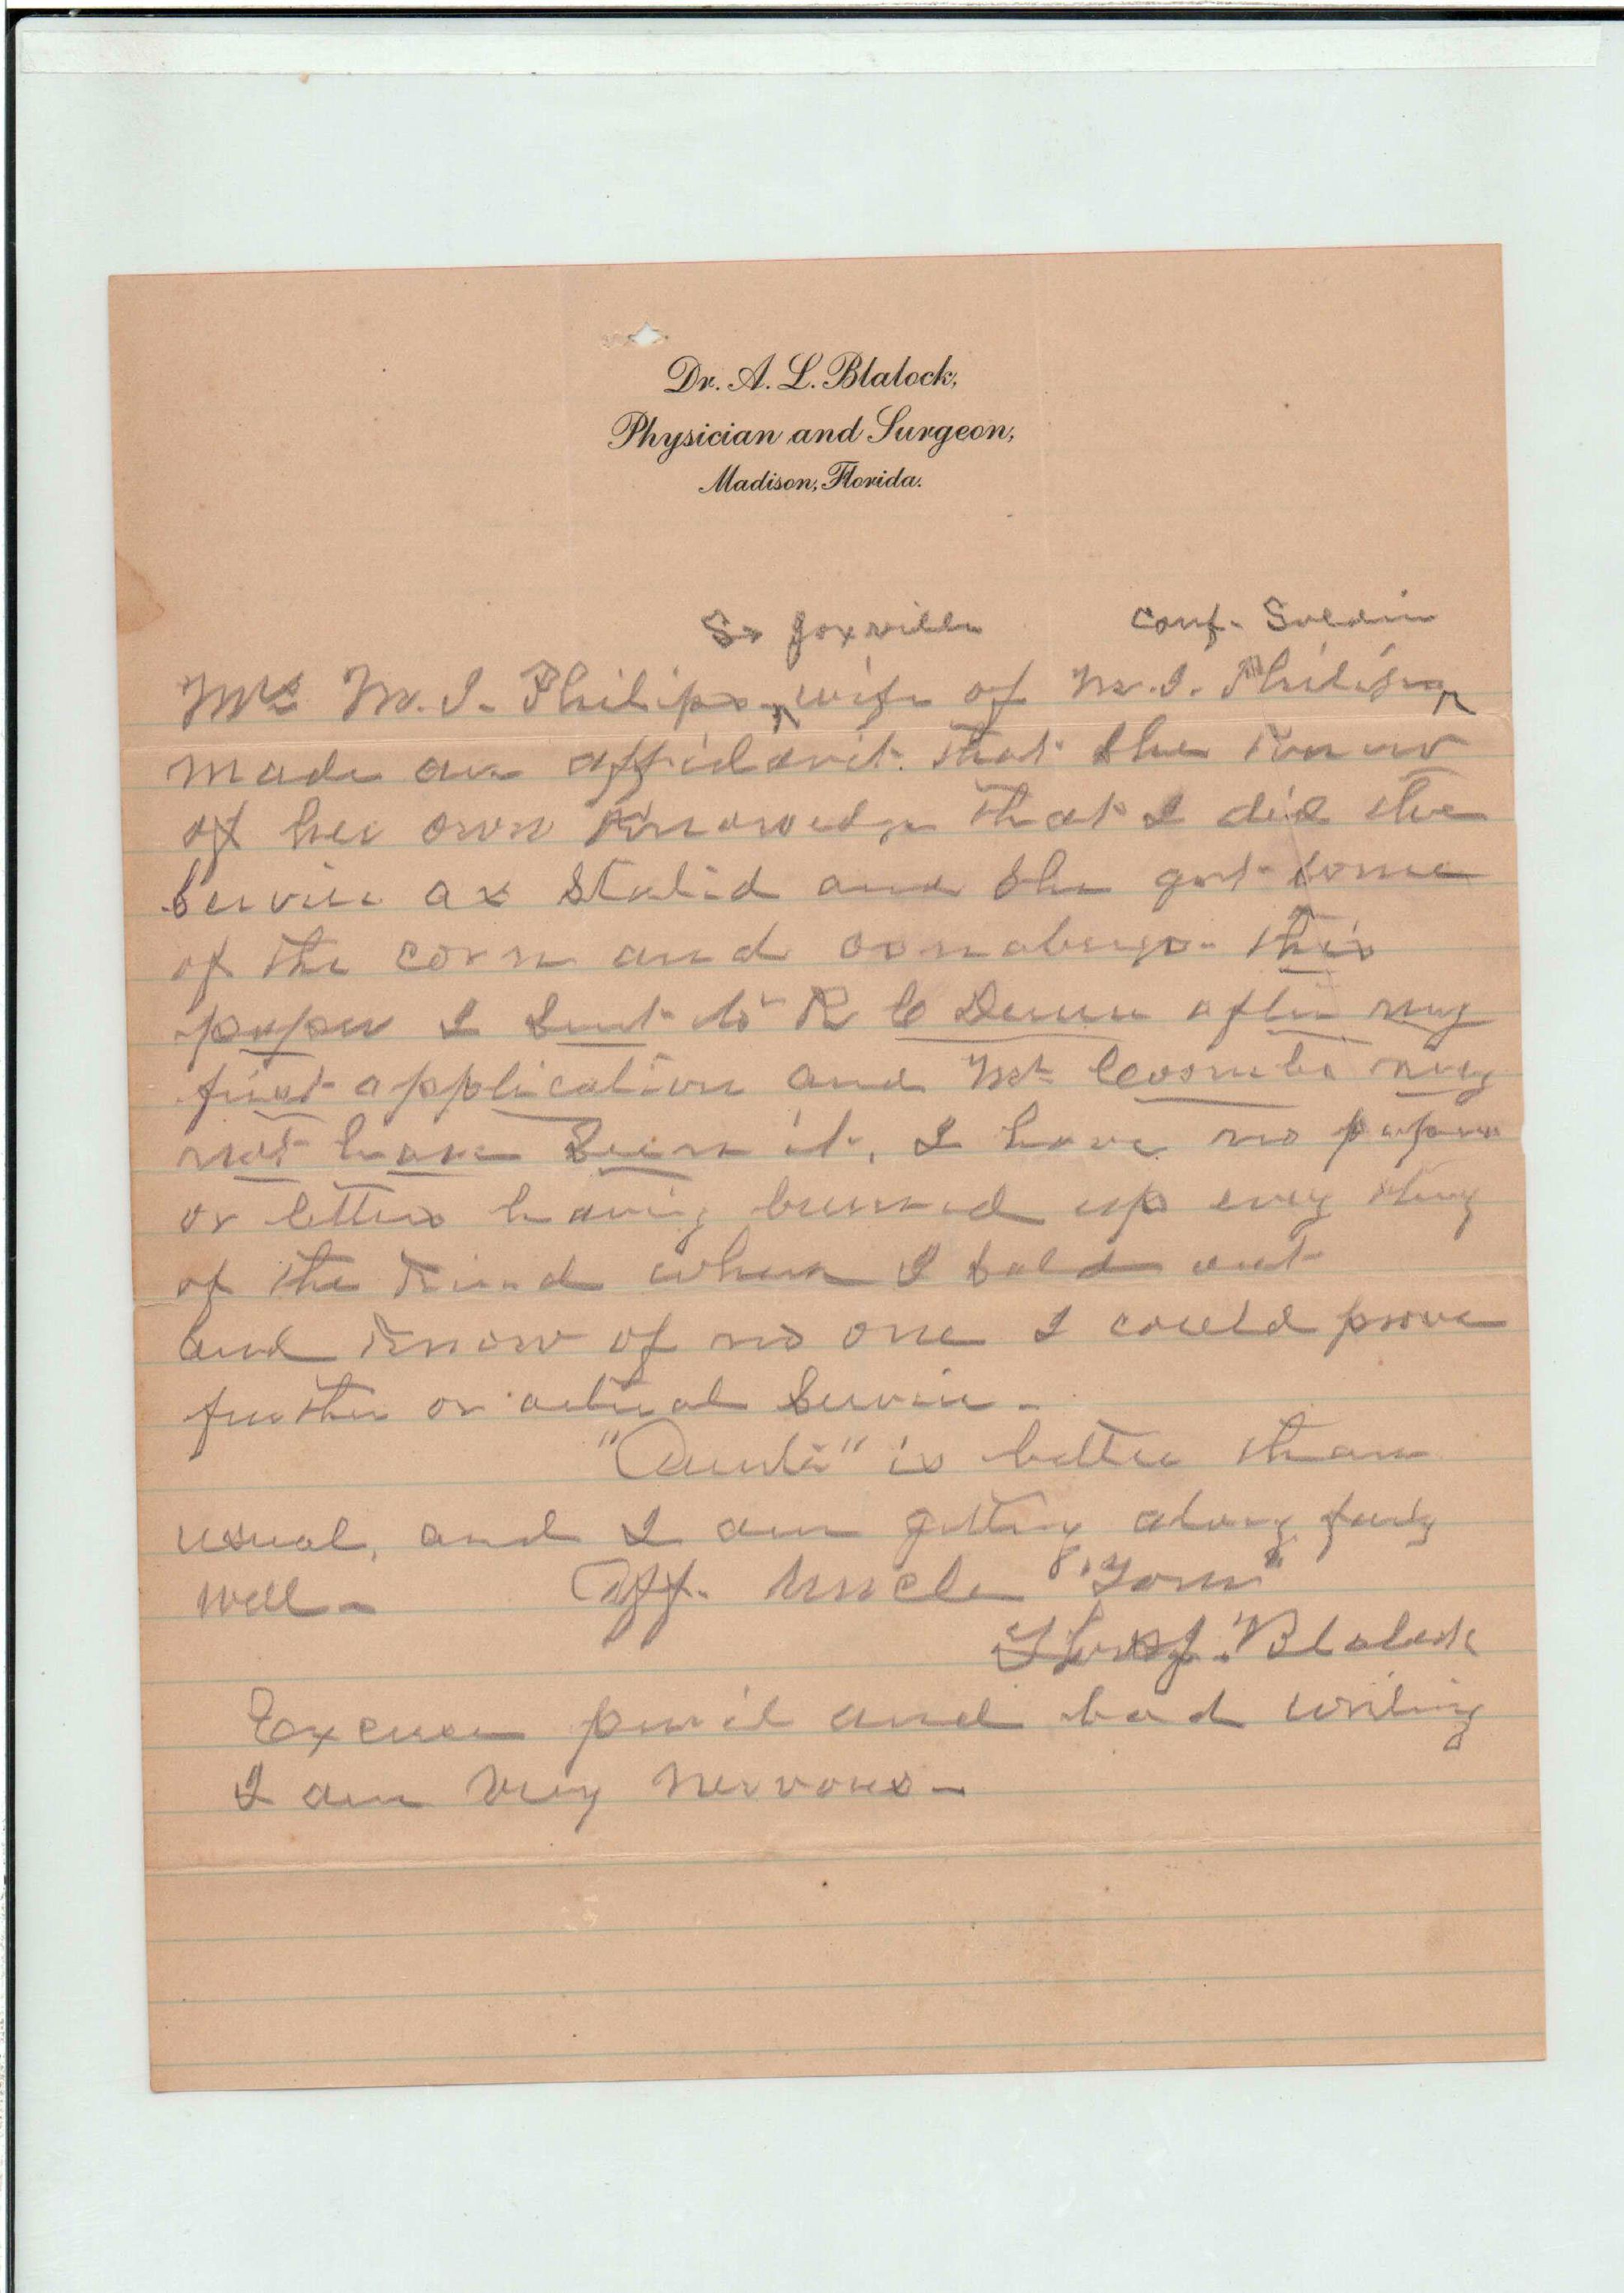 Dr. A. L. Blalock,
Physician and Surgeon,
Madison, Florida.
So Jaxville Conf. Soldier
Mrs M. I. Philips wife of M. I. Philips
made an affidavit that she knew
of her own knowledge that I did the
service as stated and she got some
of the corn and osnaburgs. this
paper I sent to R C Dunn after my
first application and Mr Coombs may
not have seen it. I have no papers
or letters having burned up every thing
of the kind when I sold out
and know of no one I could prove
further or actual service.
"Auntie" is better than
usual, and I am getting along fairly
well - Aff. Uncle "Tom"
Thos J. Blalock
Excuse pencil and bad writing
I am very nervous -